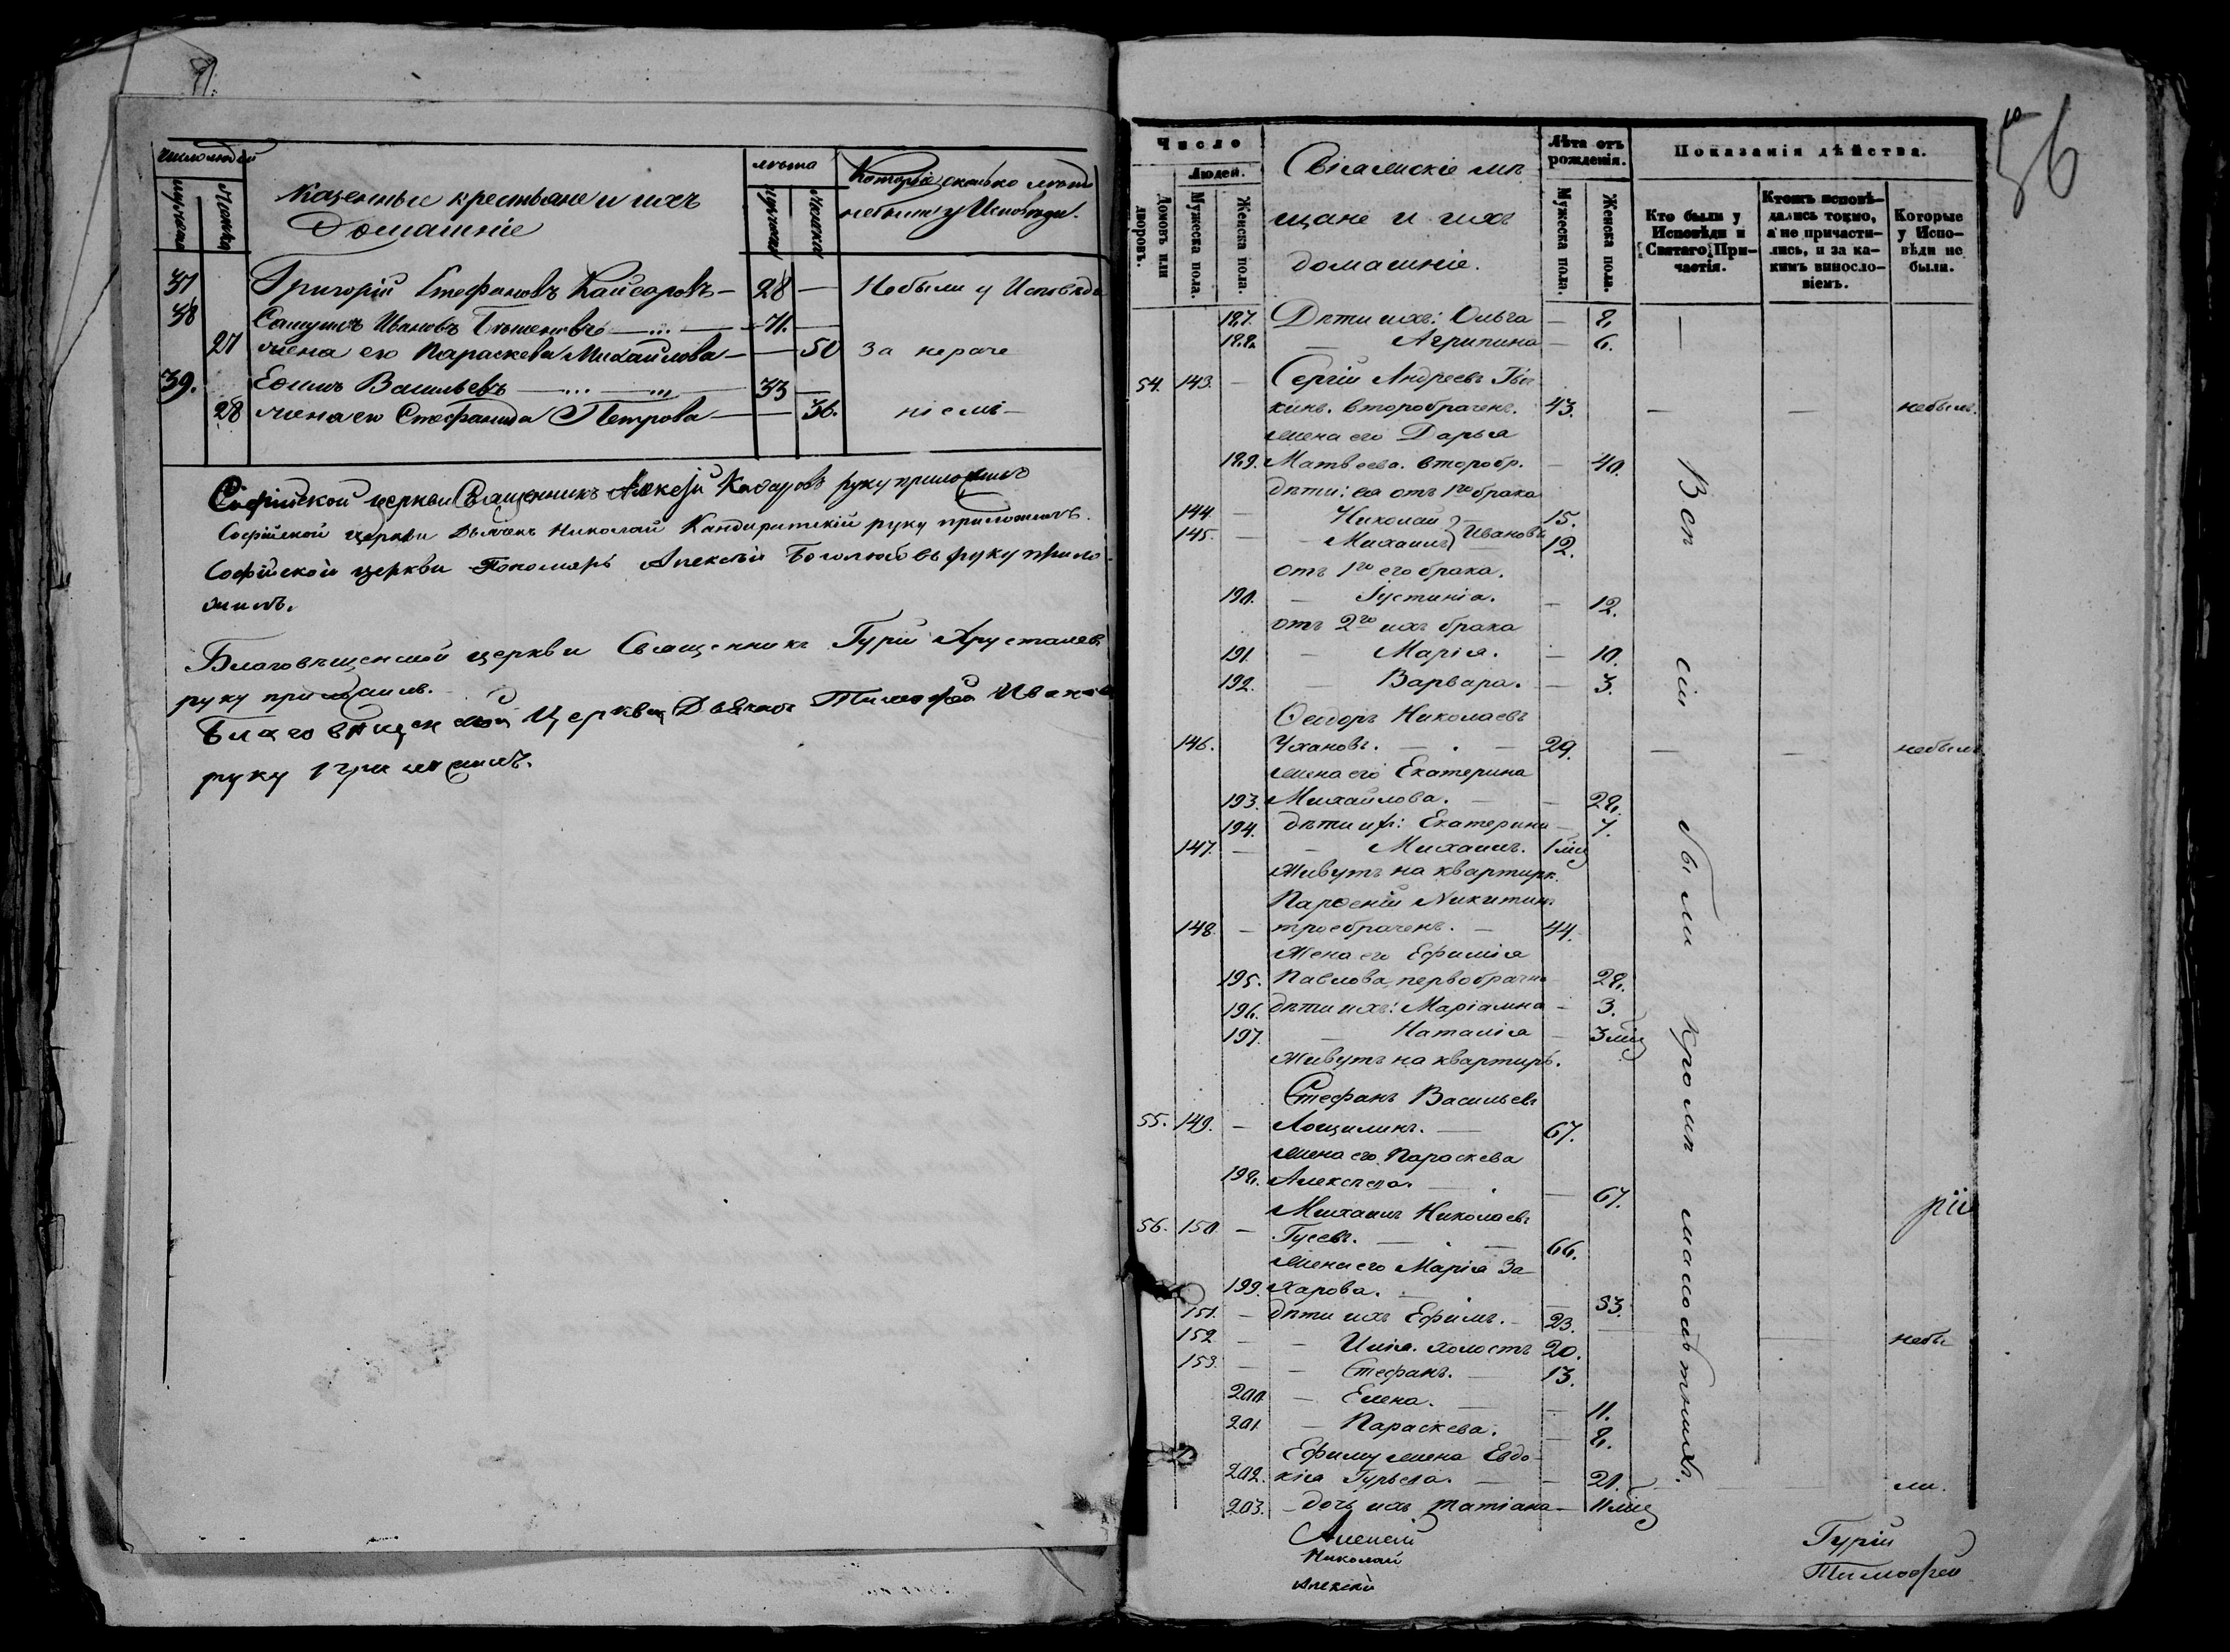 число людей
мужеска
женска
Казенные крестьяне и ихъ
Домашніе
лѣта
мужеска
женска
Которые сколько лѣтъ
небыли у Исповѣди.
37 Григорій Стефановъ Кайсаровъ — 28 — Небыли у Исповѣди
38 Ивановъ — 71. —
27 жена его Параскева Михайлова — — 50 За нераче
39. Ефимъ Васильевъ — 33 —
28 жена его Стефанида Петрова — — 36. ніемъ —
Софійской церкви Священникъ Алексѣй руку приложилъ
Софійской церкви Дьячекъ Николай руку приложилъ.
Софійской церкви Пономарь Алексѣй Боголюбовъ руку прило
жилъ.
Благовѣщенской церкви Священникъ Гурій Хрусталевъ
руку приложилъ.
Благовѣщенской Церкви Дьячекъ Тимофей Ивановъ
руку приложилъ.
56
Число
Людей.
Домовъ или дворовъ.
Мужеска пола.
Женска пола.
Свіяжскіе мѣ
щане и ихъ
домашніе.
Лѣта отъ рожденія.
Мужеска пола.
Женска пола.
Показанія дѣйства.
Кто были у Исповѣди и Святаго При-частія.
Ктожъ исповѣ-дались токмо, а не причасти-лись, и за ка-кимъ винословіемъ.
Которые у Испо-вѣди не были.
187. Дѣти ихъ: Ольга — 8.
188. — Агрипина — 6.
54. 143. — Сергій Андреевъ
кинъ. второбраченъ. 43. — — небылъ.
жена его Дарья
189. Матвеева. второбр. — 40.
дѣти: ея отъ 1го брака
144 — Николай 15.
145. — Михаилъ } Ивановы 12.
отъ 1го его брака.
190. — Іустинія. — 12.
отъ 2го ихъ брака
191. — Марія. — 10.
192. — Варвара. — 3.
Ѳеодоръ Николаевъ
146. Ухановъ. — 29. — — небылъ
жена его Екатерина
193. Михайлова. — — 28.
194. дѣти ихъ: Екатерина — 7.
147. — — Михаилъ. 1 мѣс
Живутъ на квартирѣ.
Парѳеній Никитинъ
148 — троебраченъ. — 44.
Жена его Ефимія
195. Павлова первобрачна 28.
196. дѣти ихъ: Маріамна — 3.
197. — Наталія — 3 мѣс
Живутъ на квартирѣ.
Стефанъ Васильевъ
55. 149. — Лощилинъ. — 67.
жена его Параскева
198. Алексѣева. — — 67.
Михаилъ Николаевъ
56. 150 — Гусевъ. — — 66.
жена его Марія За
199. харова. — 53.
151. — дѣти ихъ Ефимъ. — 23.
152 — — Илія. холостъ 20. — небы
153. — — Стефанъ. — 13.
200 — Елена. — — 11.
201 — Параскева. — 8.
Ефиму жена Евдо-
202. кія Гурьева. — — 21. — ли.
203. — дочь ихъ Татіана — 11 мѣс
Всѣ сіи были кромѣ малолѣтнихъ.
рій
Алексій
Николай
Алексѣй
Гурій
Тимофей